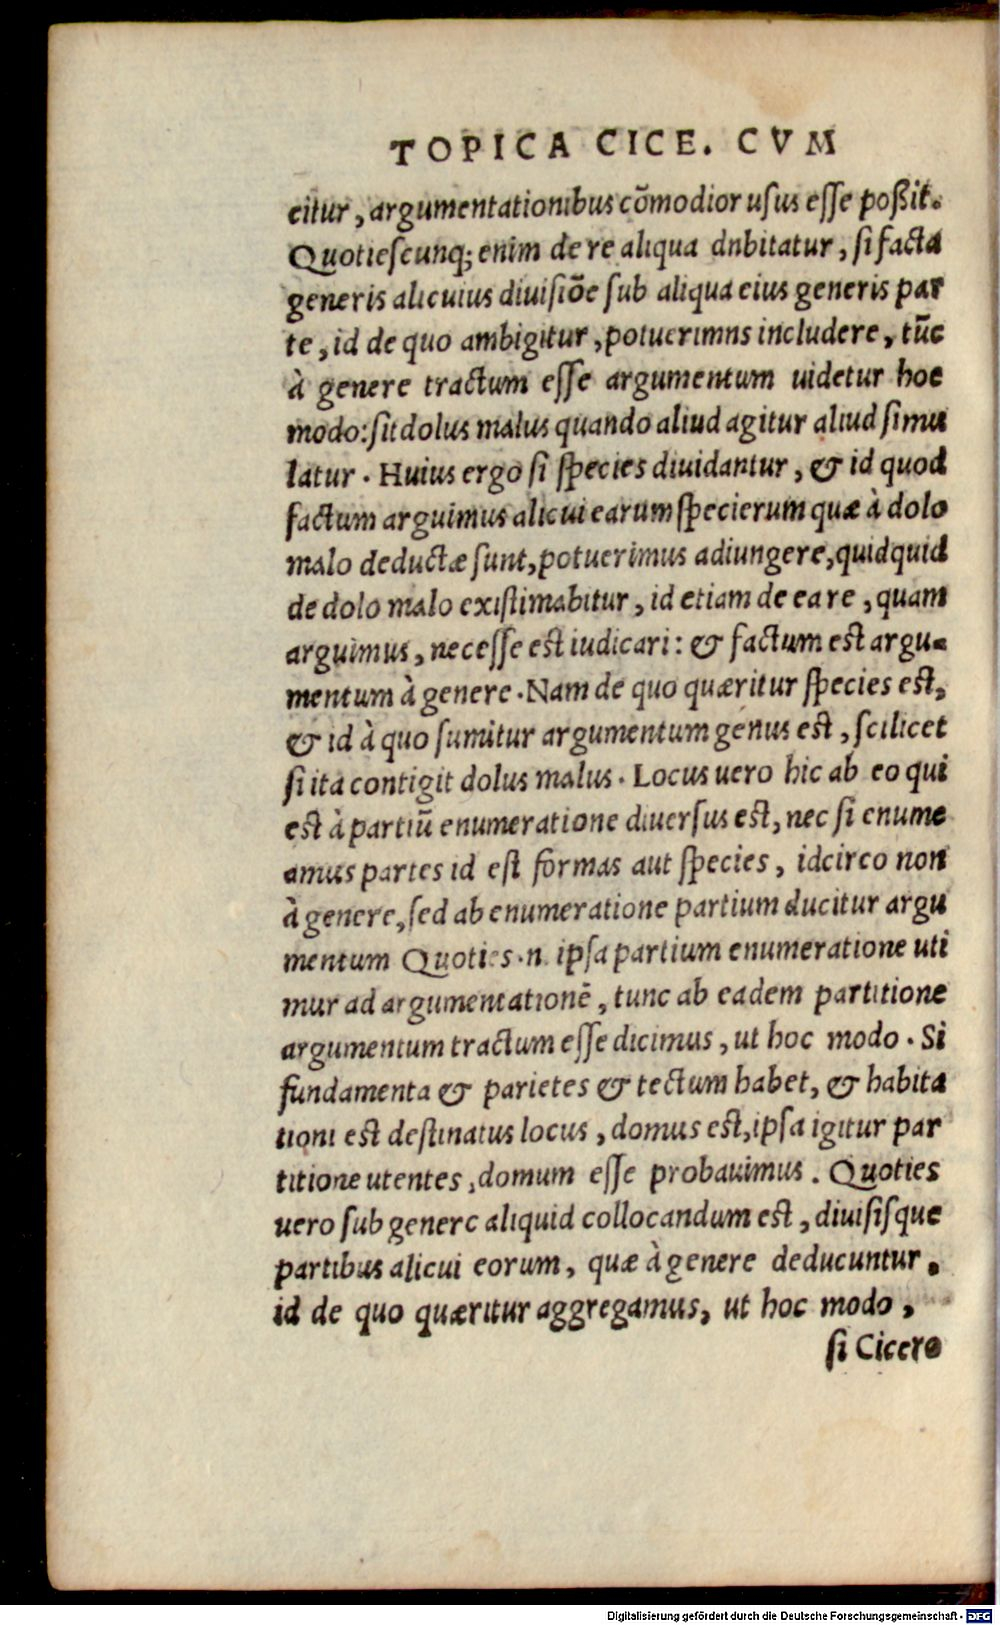 TOPICA CICE. CVM
citur, argumentationibus cõmodior usus esse poßit.
Quotiescunq; enim de re aliqua dnbitatur, si facta
generis alicuius diuisiõe sub aliqua eius generis par
te, id de quo ambigitur, potuerimns includere, tũc
à genere tractum esse argumentum uidetur hoc
modo: sit dolus malus quando aliud agitur aliud simu
latur. Huius ergo si species diuidantur, & id quod
factum arguimus alicui earum specierum quæ à dolo
malo deductæ sunt, potuerimus adiungere, quidquid
de dolo malo existimabitur, id etiam de ea re, quam
arguimus, necesse est iudicari: & factum est argu-
mentum à genere. Nam de quo quæritur species est,
& id à quo sumitur argumentum genus est, scilicet
si ita contigit dolus malus. Locus uero hic ab eo qui
est à partiũ enumeratione diuersus est, nec si enume
amus partes id est formas aut species, idcirco non
à genere, sed ab enumeratione partium ducitur argu
mentum Quoties .n. ipsa partium enumeratione uti
mur ad argumentationẽ, tunc ab eadem partitione
argumentum tractum esse dicimus, ut hoc modo. Si
fundamenta & parietes & tectum habet, & habita
tioni est destinatus locus, domus est, ipsa igitur par
titione utentes, domum esse probauimus. Quoties
uero sub genere aliquid collocandum est, diuisisque
partibus alicui eorum, quæ à genere deducuntur.
id de quo quæritur aggregamus, ut hoc modo,
si Cicero
Digitalisierung gefördert durch die Deutsche Forschungsgemeinschaft - DFG